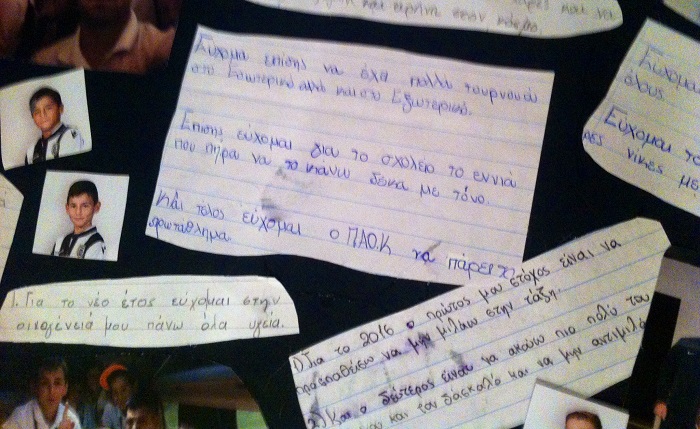 και ειρήνη στον κόσμο.
Εύχομαι επίσης να έχω πολλά τουρνουά
στο Εσωτερικό αλλά και στο Εξωτερικό.
Επίσης εύχομαι για το σχολείο το εννιά
που πήρα να το κάνω δέκα με τόνο.
Και τέλος εύχομαι ο ΠΑΟΚ να πάρει το
πρωτάθλημα.
Εύχομαι
όλους.
Εύχομαι
νίκες με
1. Για το νέο έτος εύχομαι στην
οικογένειά μου πάνω όλα υγεία.
1) Για το 2016 ο πρώτος μου στόχος είναι να
προσπαθήσω να μην μιλάω στην τάξη.
2) Και ο δεύτερος είναι να ακούω πιο πολύ του
και τον δάσκαλο και να μην αντιμιλά